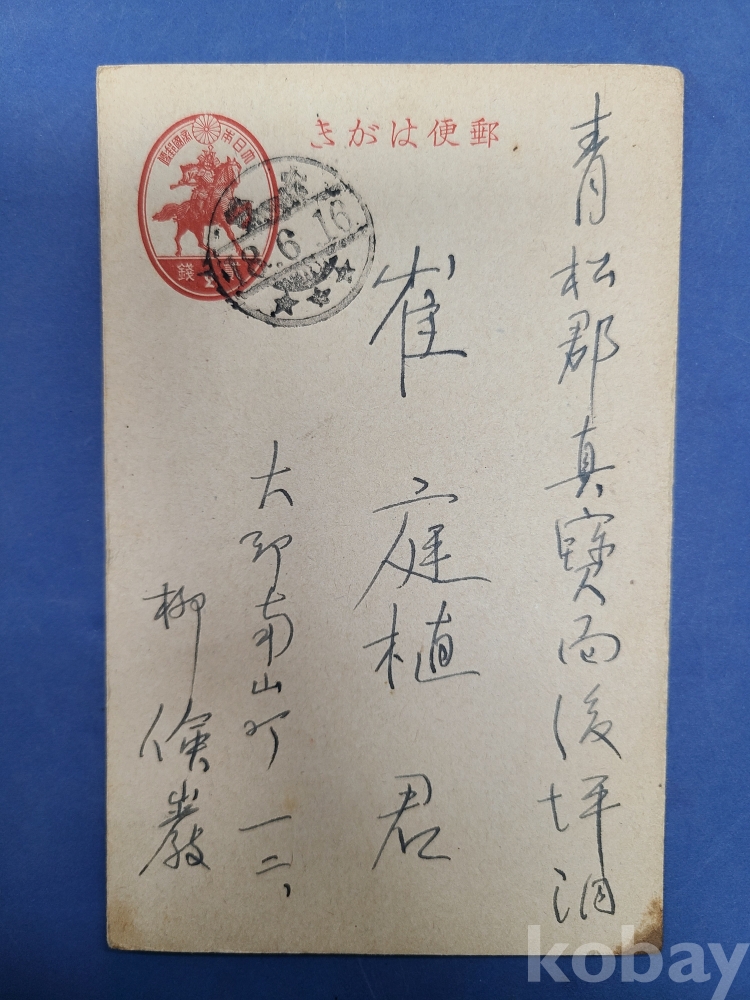 郵便はがき
大日本帝國郵便
錢
18.6.16
青松郡真寶面後坪洞
崔庭植君
大邱南山町一二、
柳儉巖
kobay